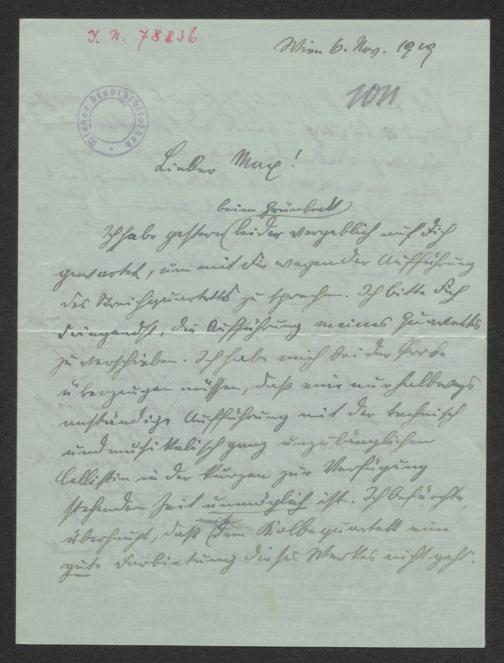 I. N. 78836
Wien 6. Nov. 1919
Wiener Stadtbibliothek
Lieber Max!
beim Grünbeck
Ich habe gestern leider vergeblich auf Dich
gewartet, um mit Dir wegen der Aufführung
des Streichquartetts zu sprechen. Ich bitte Dich
dringendst, die Aufführung meines Quartetts
zu verschieben. Ich habe mich bei der Probe
überzeugen müssen, daß eine nur halbwegs
anständige Aufführung mit der technisch
und musikalisch ganz unzulänglichen
Cellistin in der kurzen zur Verfügung
stehenden Zeit unmöglich ist. Ich befürchte,
überhaupt, daß mit dem Kolbequartett eine
gute Darbietung dieses Werkes nicht geht.